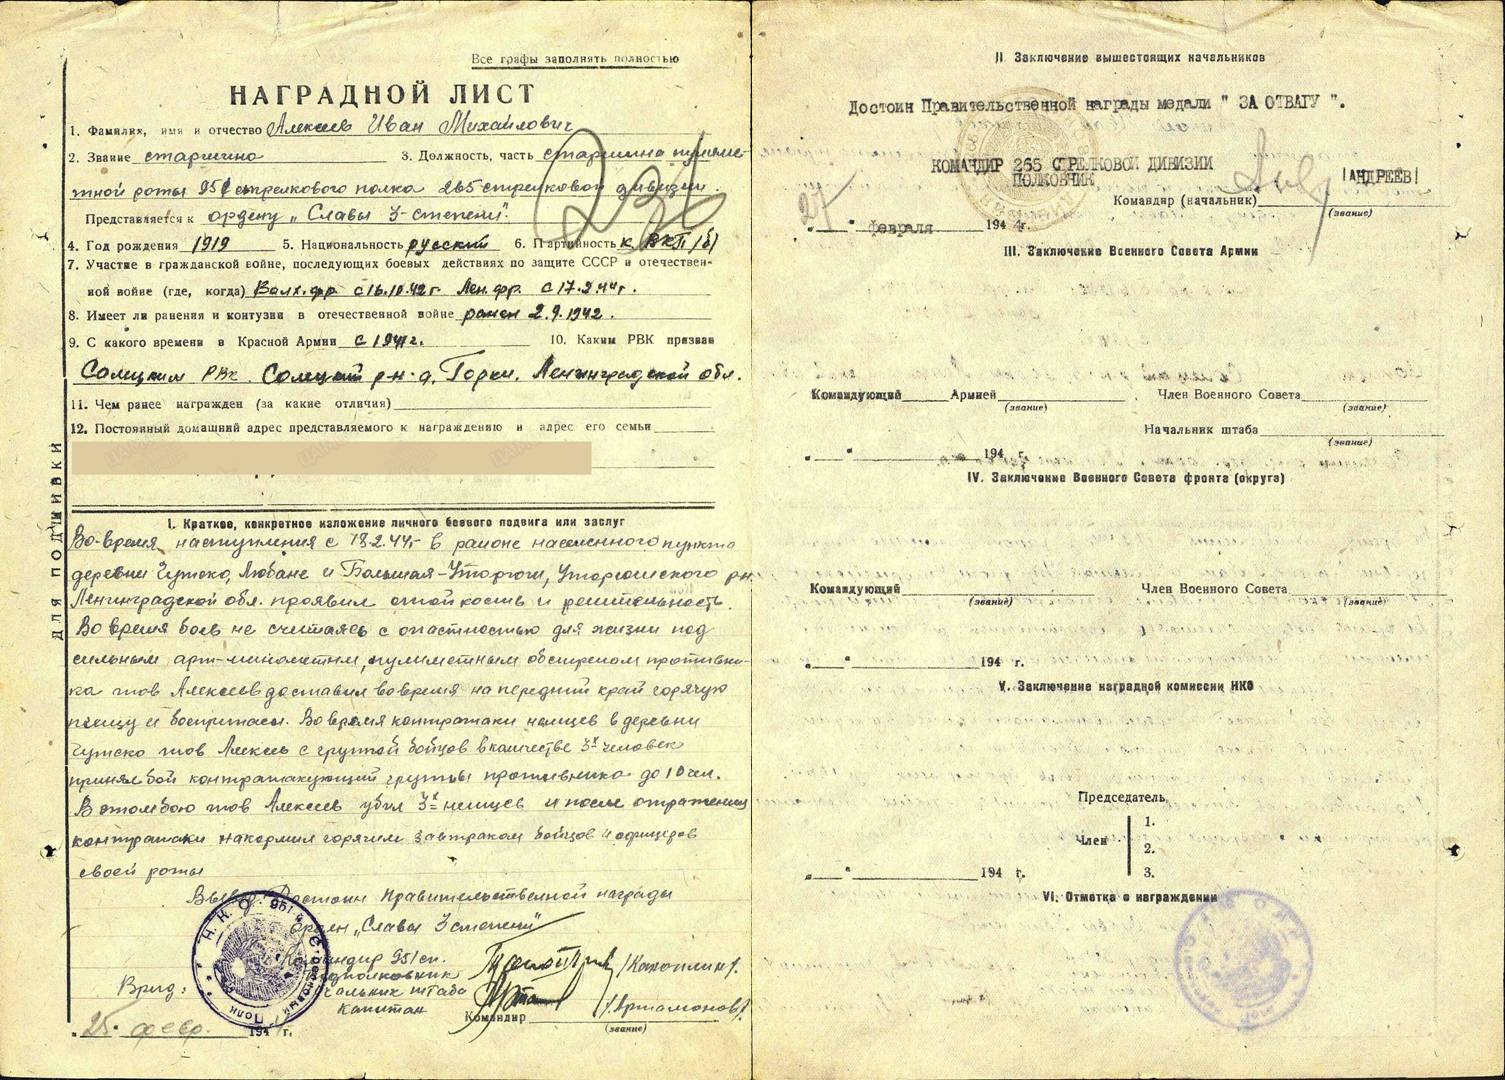 Все графы заполнять полностью
НАГРАДНОЙ ЛИСТ
1. Фамилия, имя и отчество Алексеев Иван Михайлович
2. Звание старшина 3. Должность, часть старшина пулеме-
тной роты 951 стрелкового полка 265 стрелковой дивизии.
Представляется к ордену „Славы 3-степени".
236
4. Год рождения 1919 5. Национальность русский 6. Партийность к. ВКП(б)
7. Участие в гражданской войне, последующих боевых действиях по защите СССР и отечествен-
ной войне (где, когда) Волх.фр. с 16.10.42г. Лен.фр. с 17.2.44г.
8. Имеет ли ранения и контузии в отечественной войне ранен 2.9.1942.
9. С какого времени в Красной Армии с 1941г. 10. Каким РВК призван
Солецким РВК. Солецкий р-н д. Горки. Ленинградской обл.
11. Чем ранее награжден (за какие отличия)
12. Постоянный домашний адрес представляемого к награждению и адрес его семьи
ДЛЯ ПОДШИВКИ
I. Краткое, конкретное изложение личного боевого подвига или заслуг
Во-время наступления с 18.2.44г в районе населенного пункта
деревни Чутско, Любане и Большая-Уторгош, Уторгошского р-н.
Ленинградской обл. проявил стойкость и решительность.
Во время боев не считаясь с опастностью для жизни под
сильным арт-минометным, пулиметным обстрелом противни-
ка тов Алексеев доставил вовремя на передний край горячую
пищу и боеприпасы. Во время контратаки немцев в деревни
Чутско тов Алексеев с группой бойцов в количестве 3х человек
принял бой контратакующий группы противника до 10 чел.
В этом бою тов Алексеев убил 3х немцев и после отражения
контратаки накормил горячим завтраком бойцов и офицеров
своей роты
Вывод: Достоин Правительственной награды
орден „Славы 3 степени"
Командир 951 сп.
Подполковник /Каноплин/.
Врид: Начальник штаба
капитан /Артамонов/.
Командир
(звание)
25. февр. 1944 г.
Н.К.О. 951й Стрелковый Полк
II Заключение вышестоящих начальников
Достоин Правительственной награды медали " ЗА ОТВАГУ ".
КОМАНДИР 265 СТРЕЛКОВОЙ ДИВИЗИИ
ПОЛКОВНИК /АНДРЕЕВ/
Командир (начальник)
(звание)
27 " февраля 1944 г.
III. Заключение Военного Совета Армии
Командующий Армией Член Военного Совета
(звание) (звание)
Начальник штаба
(звание)
" " 194 г.
IV. Заключение Военного Совета фронта (округа)
Командующий Член Военного Совета
(звание) (звание)
" " 194 г.
V. Заключение наградной комиссии НКО
Председатель
Член
1.
2.
3.
" " 194 г.
VI. Отметка о награждении